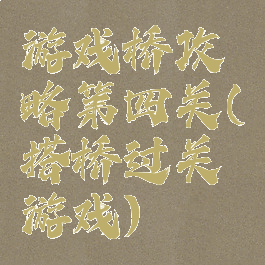 游戏桥攻
略第四关(
搭桥过关
游戏)